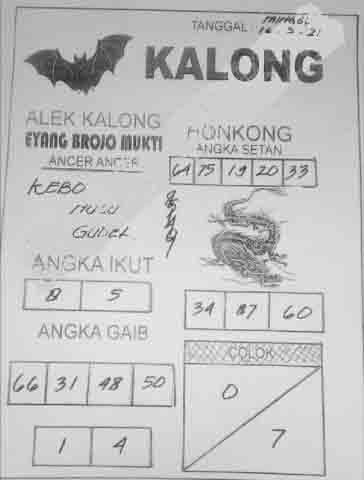 TANGGAL : MINGGU
16.5-21
KALONG
ALEK KALONG
EYANG BROJO MUKTI
ANCER ANCER
KEBO
GUDEL
HONKONG
ANGKA SETAN
64 75 19 20 33
ANGKA IKUT
0 5
34 87 60
ANGKA GAIB
66 31 48 50
1 4
COLOK
0
7